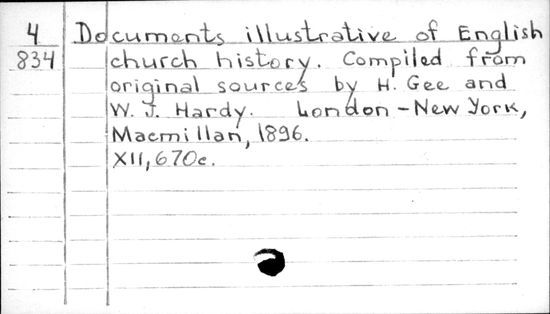 4 Documents illustrative of English
834 church history. Compiled from
original sources by H. Gee and
W. J. Hardy. London - New York,
Macmillan, 1896.
XII, 670c.